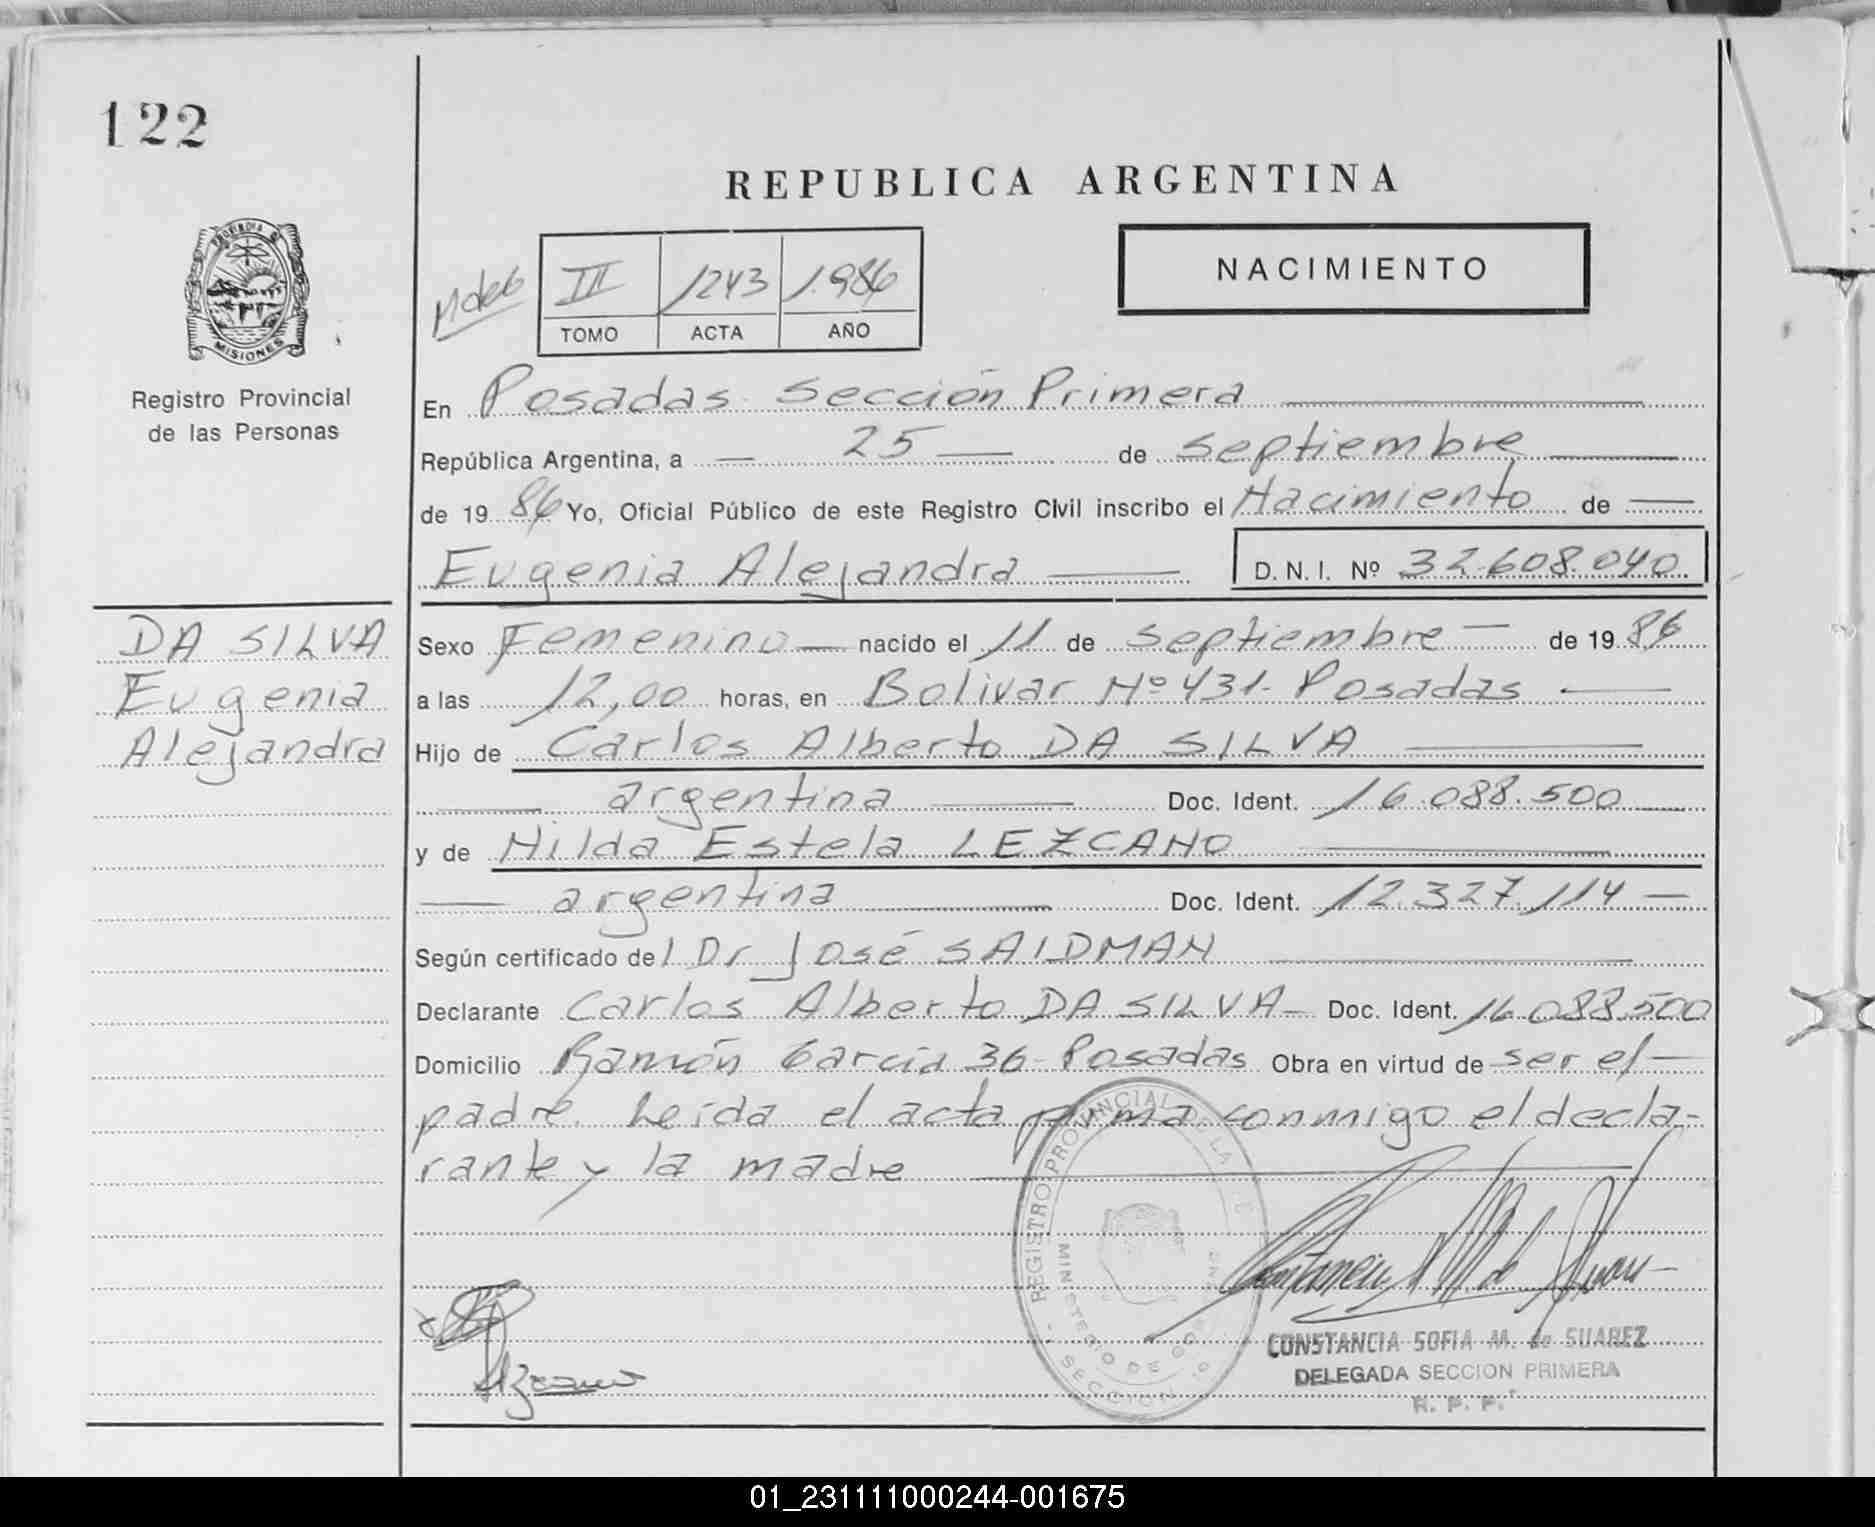 122
REPUBLICA ARGENTINA
PROVINCIA D
MISIONES
Registro Provincial
de las Personas
III 1243 1.986
TOMO ACTA AÑO
NACIMIENTO
En Posadas Sección Primera
República Argentina, a — 25 — de septiembre
de 19 86 Yo, Oficial Público de este Registro Civil inscribo el Nacimiento de —
Eugenia Alejandra — D.N.I. Nº 32.608.040
DA SILVA
Eugenia
Alejandra
Sexo Femenino — nacido el 11 de septiembre — de 19 86
a las 12,00 horas, en Bolivar Nº 431- Posadas —
Hijo de Carlos Alberto DA SILVA —
— argentina — Doc. Ident. 16.088.500 —
y de Hilda Estela LEZCANO —
— argentina — Doc. Ident. 12.327.114 —
Según certificado del Dr José SAIDMAN —
Declarante Carlos Alberto DA SILVA - Doc. Ident. 16.088.500
Domicilio Ramón García 36 - Posadas Obra en virtud de ser el —
padre. Leída el acta firma conmigo el decla-
rante y la madre —
REGISTRO PROVINCIAL DE LA
MINISTERIO DE GO
SECCION
CONSTANCIA SOFIA M. de SUAREZ
DELEGADA SECCION PRIMERA
R. P. P.
01_231111000244-001675